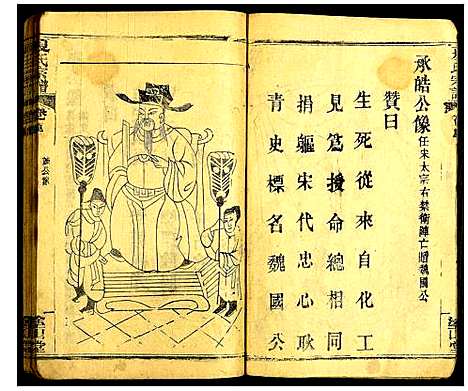 承皓公像 任宋太宗右禁衛陣亡贈魏國公
贊曰
生死從來自化工
見笃授命總相同
捐軀宋代忠心耿
青史標名魏國公
夏氏宗譜
皓公像